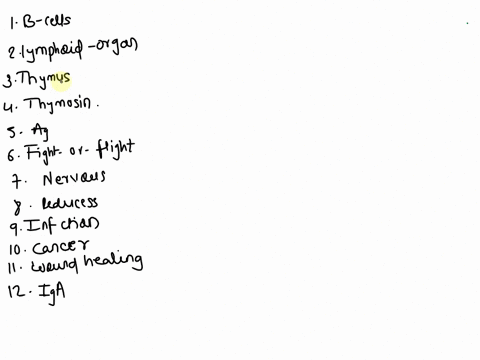 1. B-cells
2. Lymphoid-organ
3. Thymus
4. Thymosin.
5. Ag
6. Fight-or-flight
7. Nervous
8. Reducess
9. Infctions
10. Cancer
11. Wound healing
12. IgA